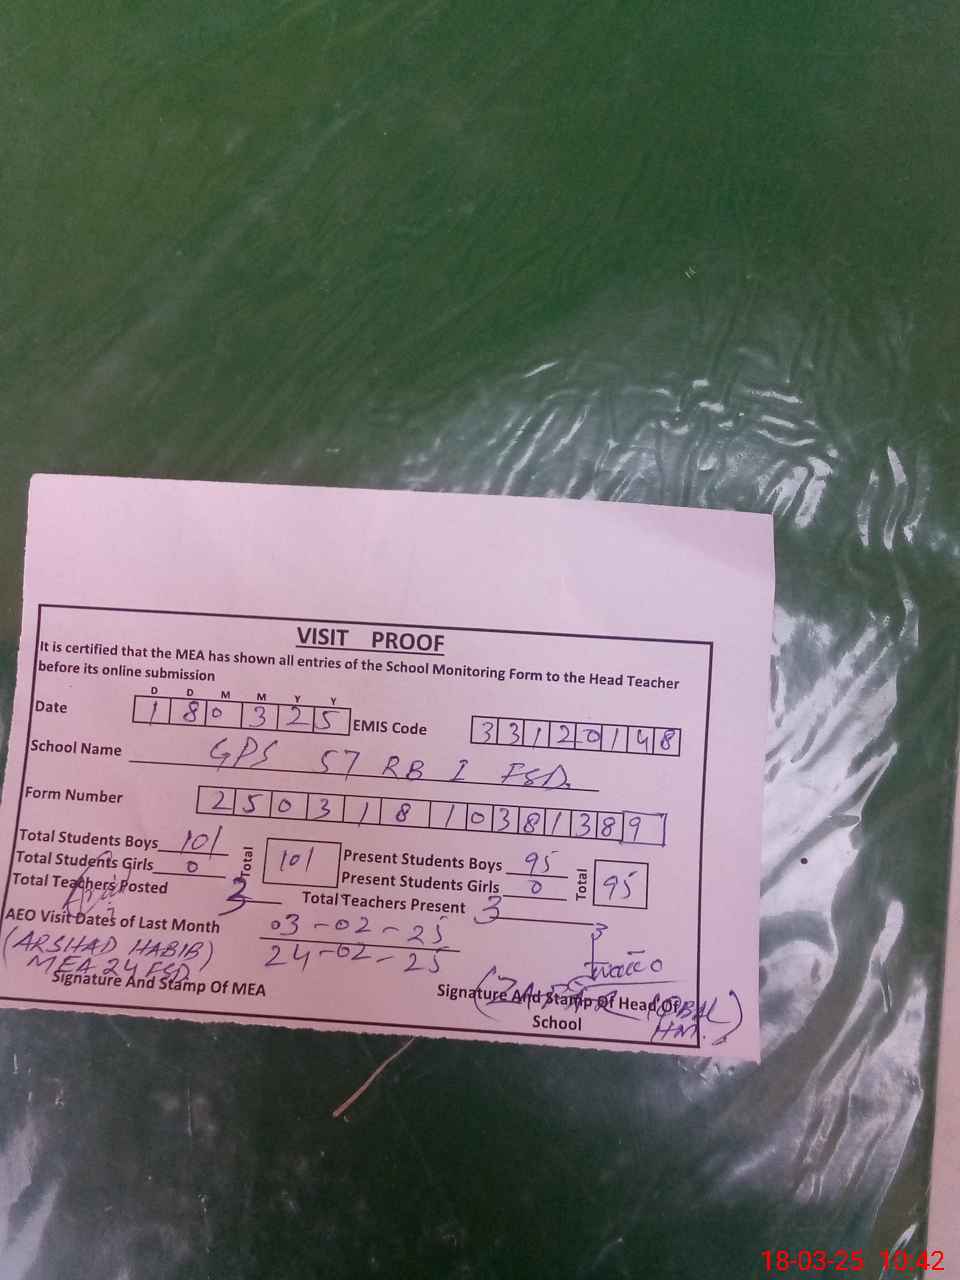 VISIT PROOF
It is certified that the MEA has shown all entries of the School Monitoring Form to the Head Teacher
before its online submission
D D M M Y Y
Date 1 8 0 3 2 5 EMIS Code 3 3 1 2 0 1 4 8
School Name GPS 57 RB I FSD.
Form Number 2 5 0 3 1 8 1 0 3 8 1 3 8 9
Total Students Boys 101 Total 101 Present Students Boys 95 Total 95
Total Students Girls 0 Present Students Girls 0
Total Teachers Posted 3 Total Teachers Present 3
AEO Visit Dates of Last Month 03-02-25
24-02-25
(ARSHAD HABIB)
MEA 24 FSD
Signature And Stamp Of MEA
Signature And Stamp Of Head Of
School
(ZAFAR IQBAL)
HM.
18-03-25 10:42